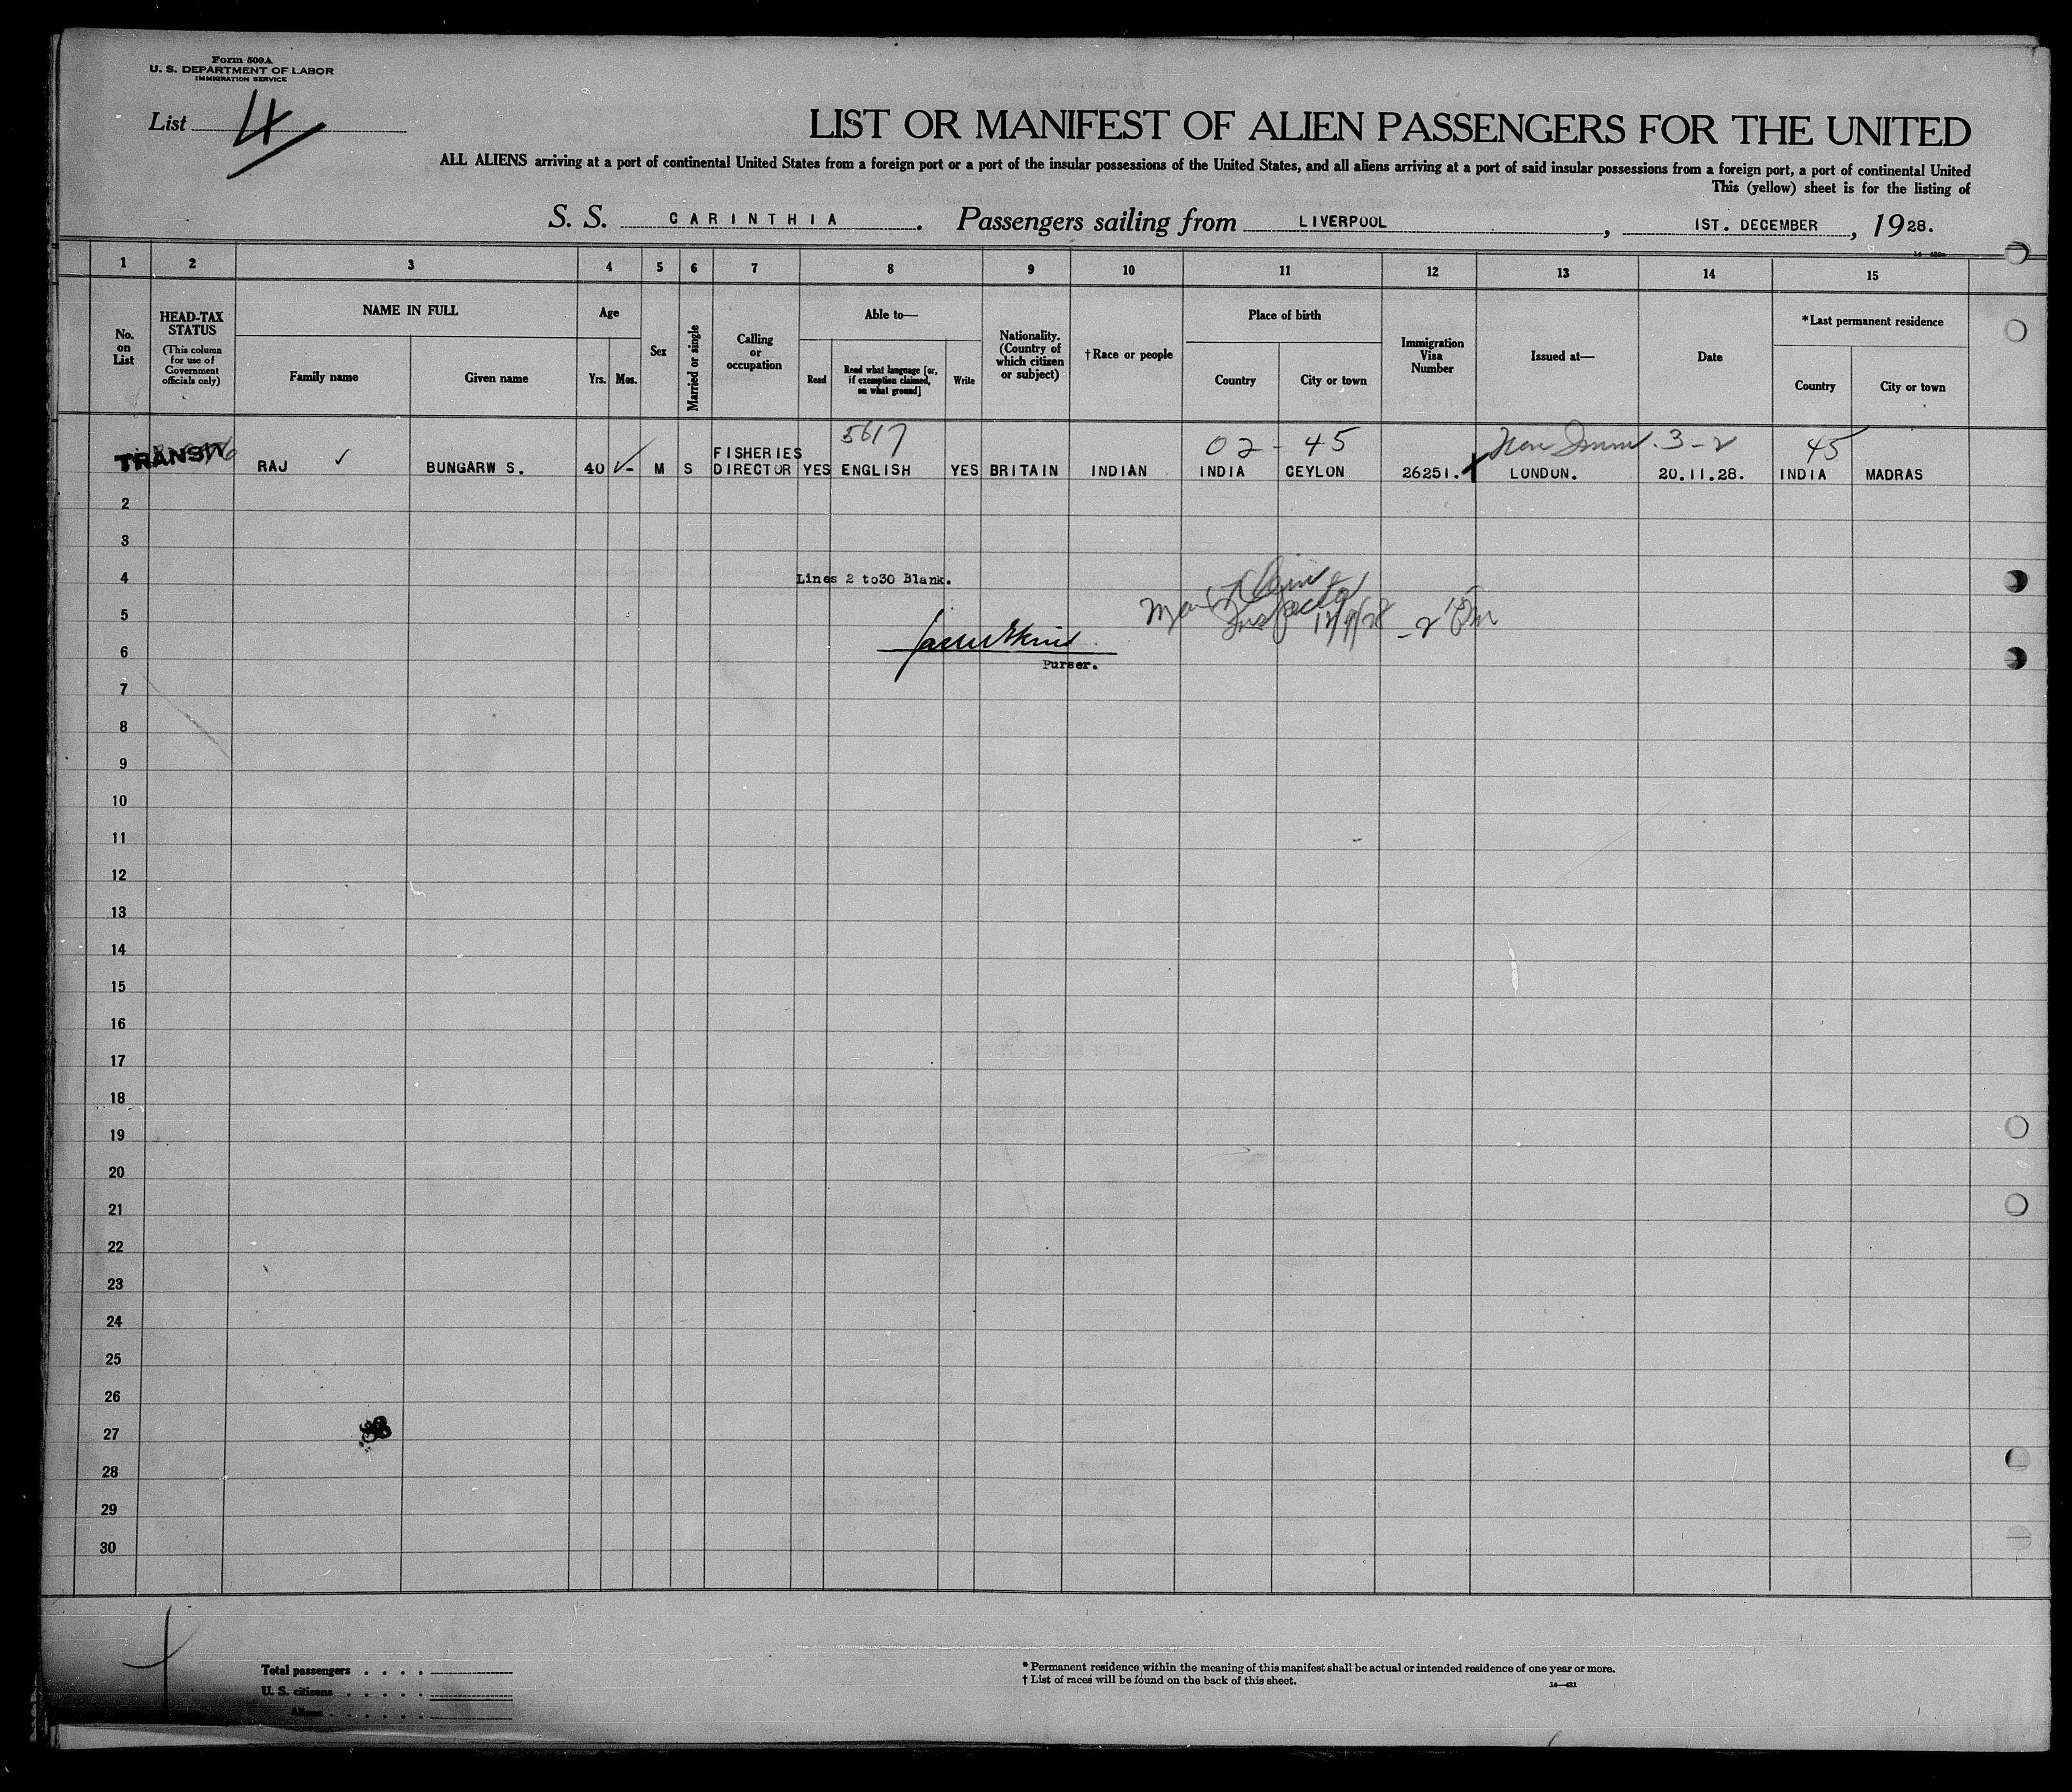 Form 500A
U. S. DEPARTMENT OF LABOR
IMMIGRATION SERVICE
List 4
LIST OR MANIFEST OF ALIEN PASSENGERS FOR THE UNITED
ALL ALIENS arriving at a port of continental United States from a foreign port or a port of the insular possessions of the United States, and all aliens arriving at a port of said insular possessions from a foreign port, a port of continental United
This (yellow) sheet is for the listing of
S. S. CARINTHIA. Passengers sailing from LIVERPOOL, 1ST. DECEMBER, 1928.
1 2 3 4 5 6 7 8 9 10 11 12 13 14 15
No. on List
HEAD-TAX STATUS
(This column for use of Government officials only)
NAME IN FULL
Family name
Given name
Age
Yrs.
Mos.
Sex
Married or single
Calling or occupation
Able to—
Read
Read what language [or, if exemption claimed, on what ground]
Write
Nationality. (Country of which citizen or subject)
†Race or people
Place of birth
Country
City or town
Immigration Visa Number
Issued at—
Date
*Last permanent residence
Country
City or town
5617 02 - 45 Non Immi. 3-2 45
TRANSIT RAJ ✓ BUNGARW S. 40 ✓ - M S FISHERIES DIRECTOR YES ENGLISH YES BRITAIN INDIAN INDIA CEYLON 26251. LONDON. 20.11.28. INDIA MADRAS
2
3
4 Lines 2 to30 Blank.
5 Inspector
6
Purser.
7
8
9
10
11
12
13
14
15
16
17
18
19
20
21
22
23
24
25
26
27
28
29
30
Total passengers
U. S. citizens
Aliens
* Permanent residence within the meaning of this manifest shall be actual or intended residence of one year or more.
† List of races will be found on the back of this sheet.
14—421